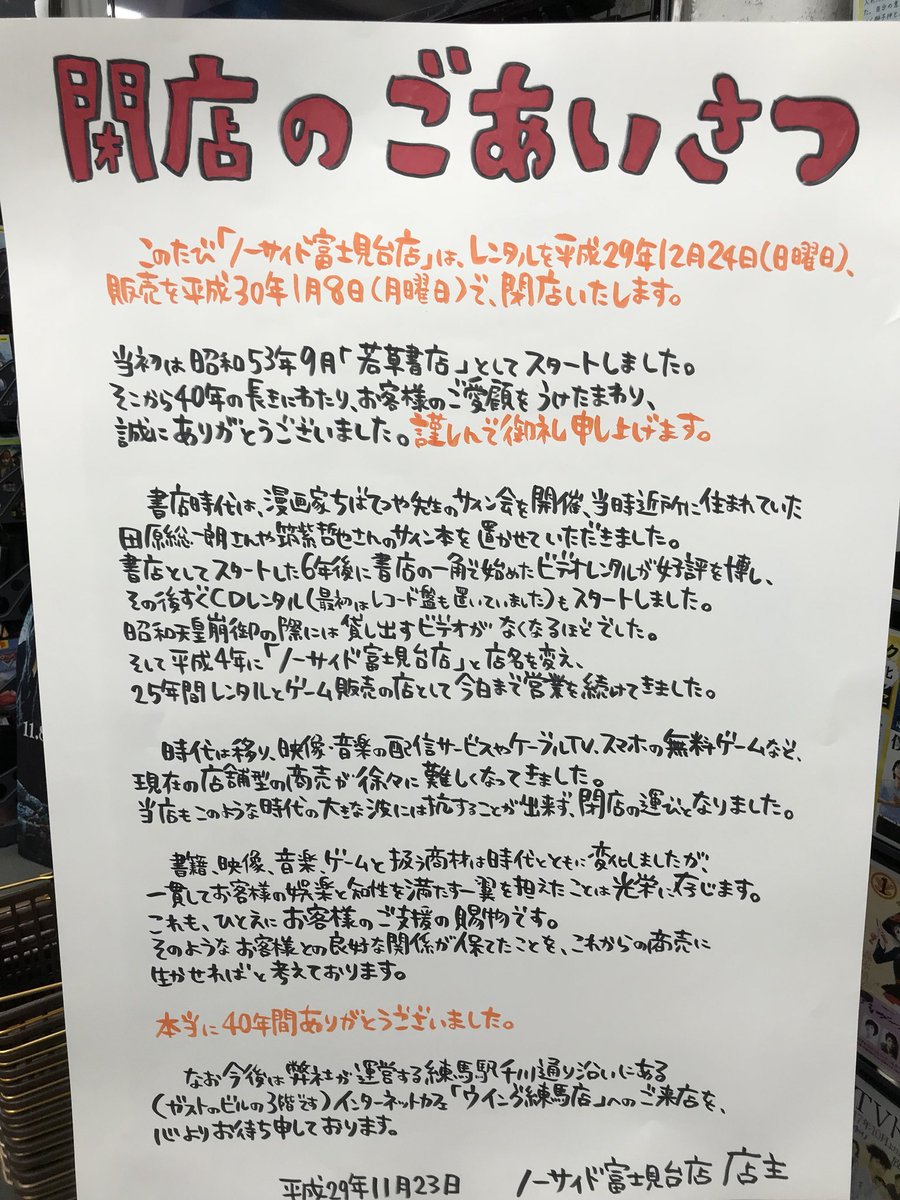 閉店のごあいさつ
このたび「ノーサイド富士見台店」は、レンタルを平成29年12月24日(日曜日)、
販売を平成30年1月8日(月曜日)で、閉店いたします。
当初は昭和53年9月「若草書店」としてスタートしました。
そこから40年の長きにわたり、お客様のご愛顧をうけたまわり、
誠にありがとうございました。謹しんで御礼申し上げます。
書店時代は、漫画家ちばてつや先生のサイン会を開催、当時近所に住まれていた
田原総一朗さんや筑紫哲也さんのサイン本を置かせていただきました。
書店としてスタートした6年後に書店の一角で始めたビデオレンタルが好評を博し、
その後すぐCDレンタル(最初はレコード盤も置いていました)もスタートしました。
昭和天皇崩御の際には貸し出すビデオがなくなるほどでした。
そして平成4年に「ノーサイド富士見台店」と店名を変え、
25年間レンタルとゲーム販売の店として今日まで営業を続けてきました。
時代は移り、映像・音楽の配信サービスやケーブルTV、スマホの無料ゲームなど、
現在の店舗型の商売が徐々に難しくなってきました。
当店もこのような時代の大きな波には抗することが出来ず、閉店の運びとなりました。
書籍、映像、音楽、ゲームと扱う商材は時代とともに変化しましたが、
一貫してお客様の娯楽と知性を満たす一翼を担えたことは光栄に存じます。
これも、ひとえにお客様のご支援の賜物です。
そのようなお客様との良好な関係が保てたことを、これからの商売に
生かせればと考えております。
本当に40年間ありがとうございました。
なお今後は弊社が運営する練馬駅千川通り沿いにある
(ガストのビルの3階です)インターネットカフェ「ウイング練馬店」へのご来店を、
心よりお待ち申しております。
平成29年11月23日 ノーサイド富士見台店 店主